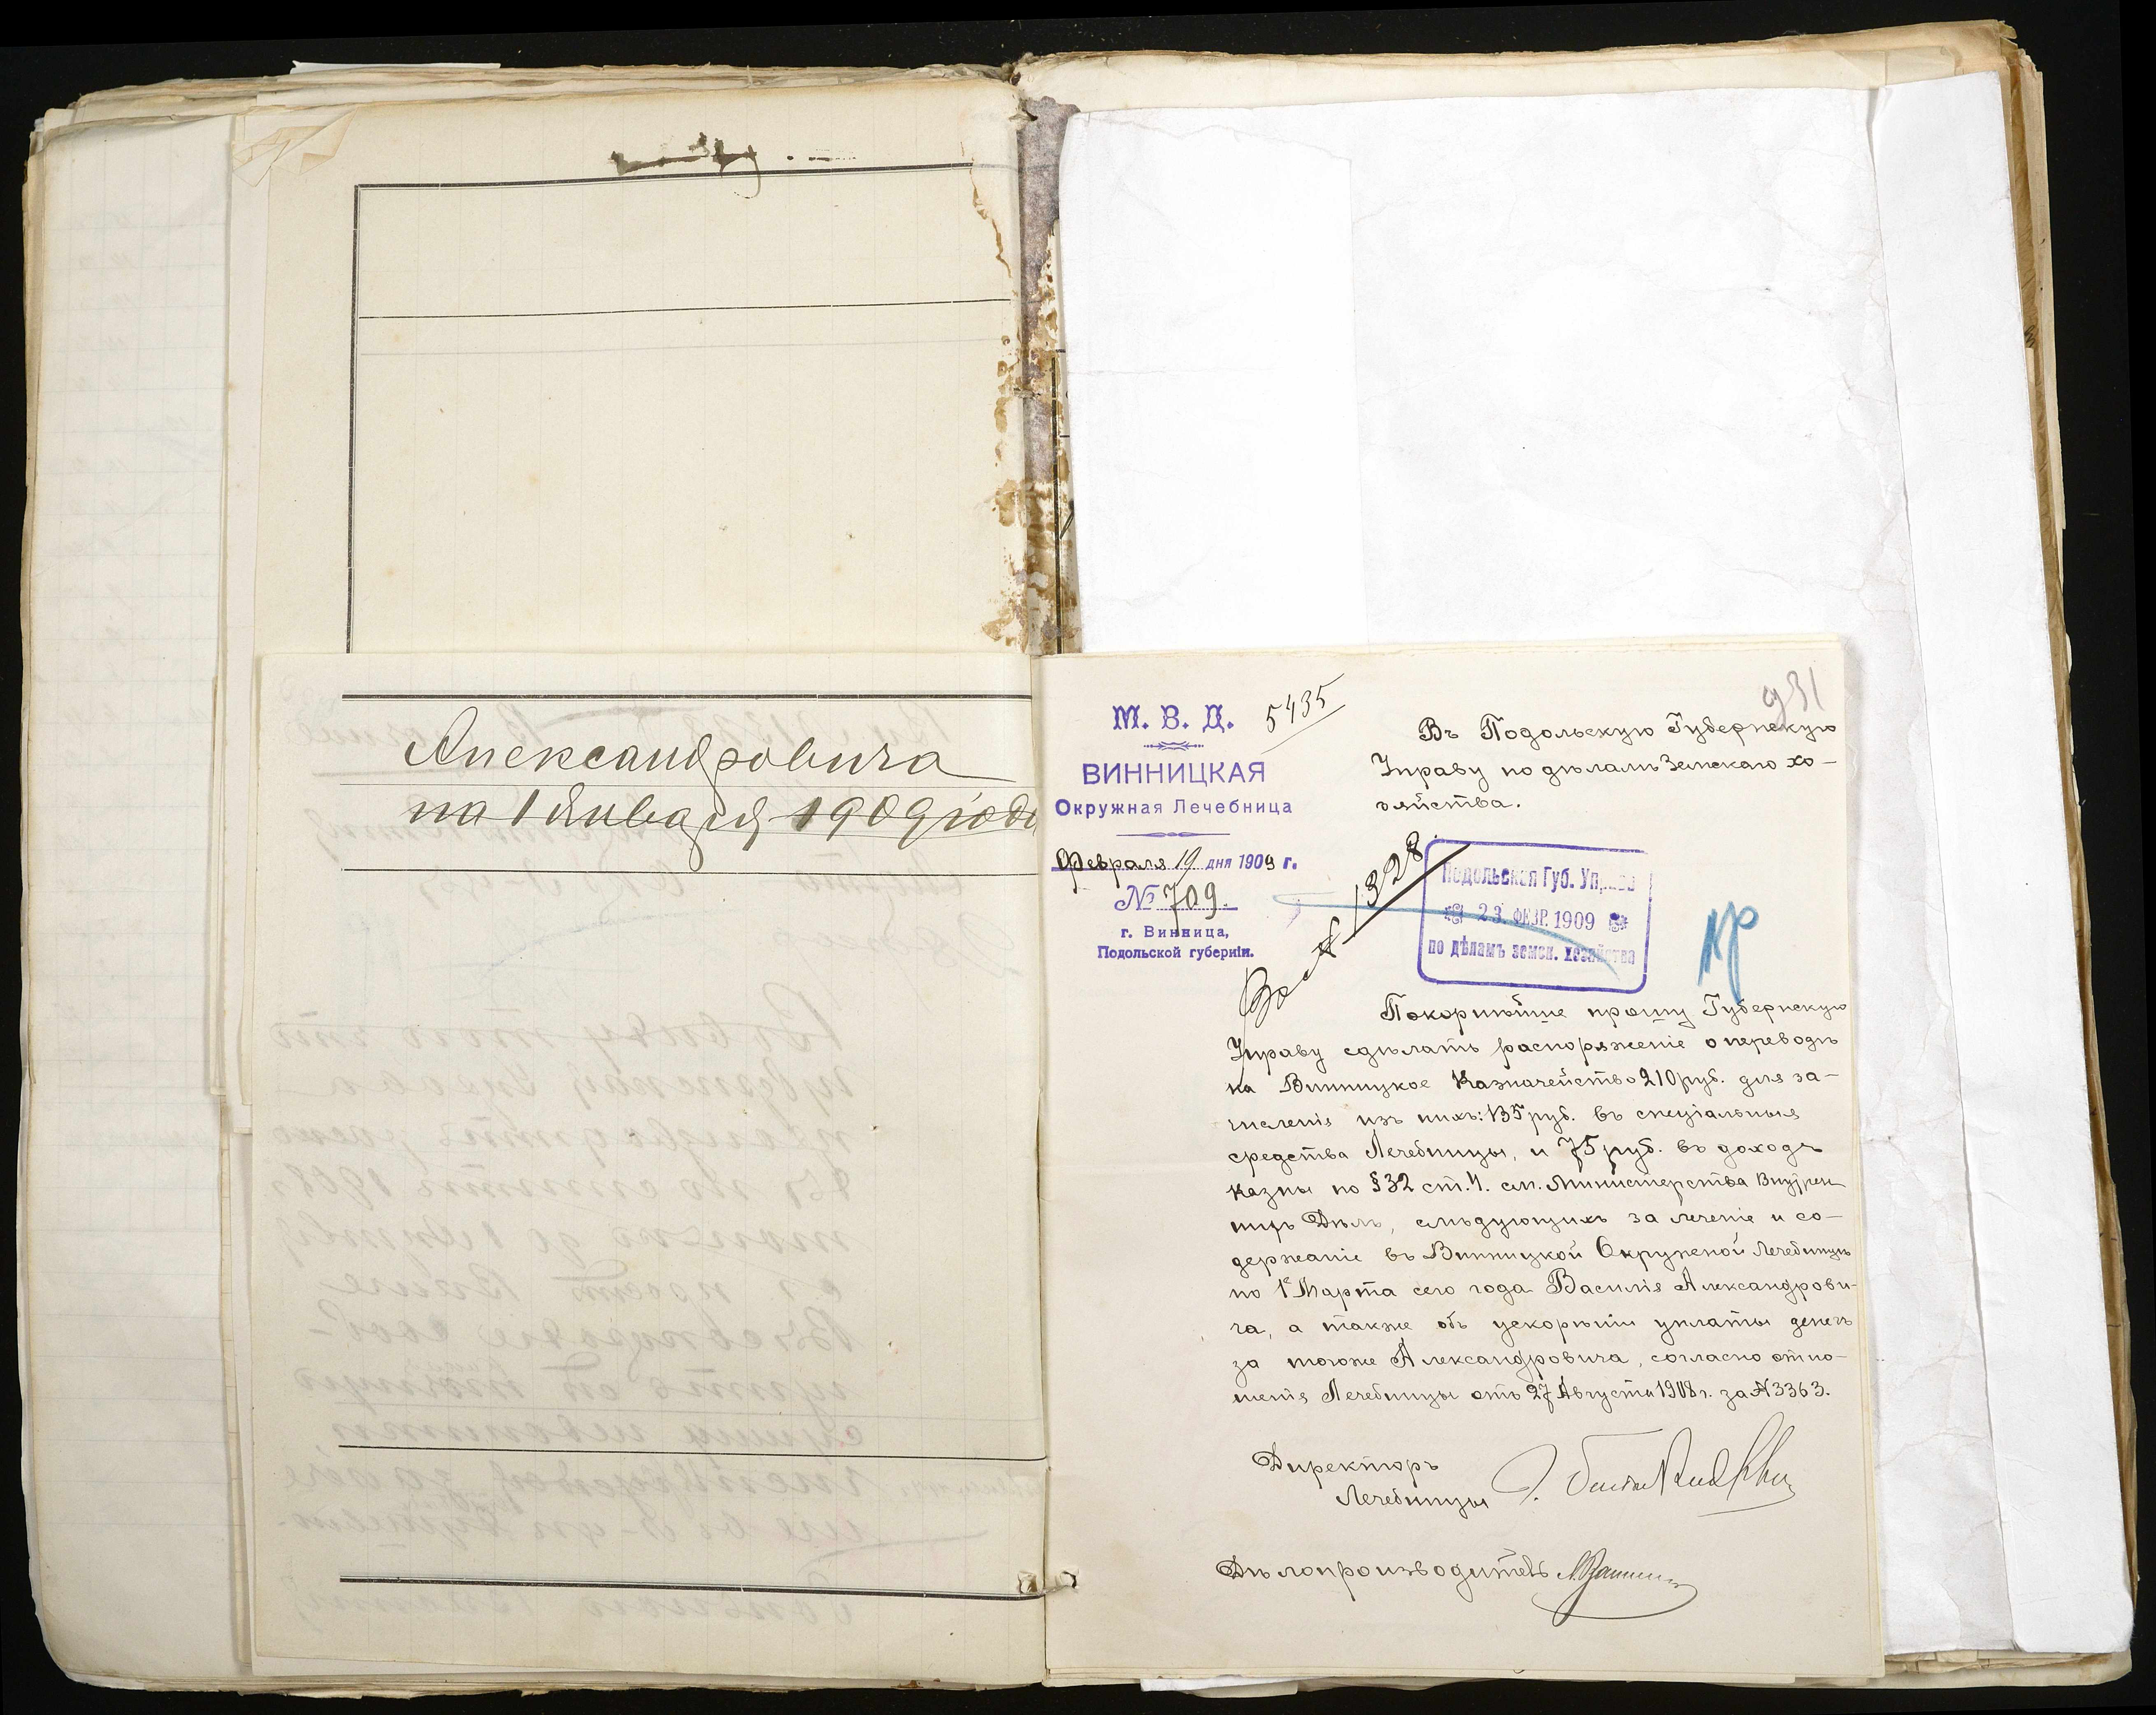 Александровича
на 1 Января 1909 года
931
М. В. Д.
5435
ВИННИЦКАЯ
Окружная Лечебница
Февраля 19 дня 1909 г.
№ 709.
г. Винница,
Подольской губернiи.
Въ Подольскую Губернскую
Управу по дѣламъ Земскаго хо-
зяйства.
№ 1328
Подольская Губ. Управа
23 ФЕВР. 1909
по дѣламъ земск. хозяйства
Покорнѣйше прошу Губернскую
Управу сдѣлать распоряженіе о переводѣ
на Винницкое Казначейство 210 руб. для за-
численія изъ нихъ: 135 руб. въ спеціальныя
средства Лечебницы, и 75 руб. въ доходъ
казны по § 32 ст. 4. см. Министерства Внутрен
нихъ Дѣлъ, слѣдующихъ за леченіе и со-
держаніе въ Винницкой Окружной Лечебницѣ
по 1е Марта сего года Василія Александрови-
ча, а также объ ускореніи уплаты денегъ
за тогоже Александровича, согласно отно-
шенія Лечебницы отъ 27 Августа 1908 г. за № 3363.
Директоръ
Лечебницы
Дѣлопроизводитель